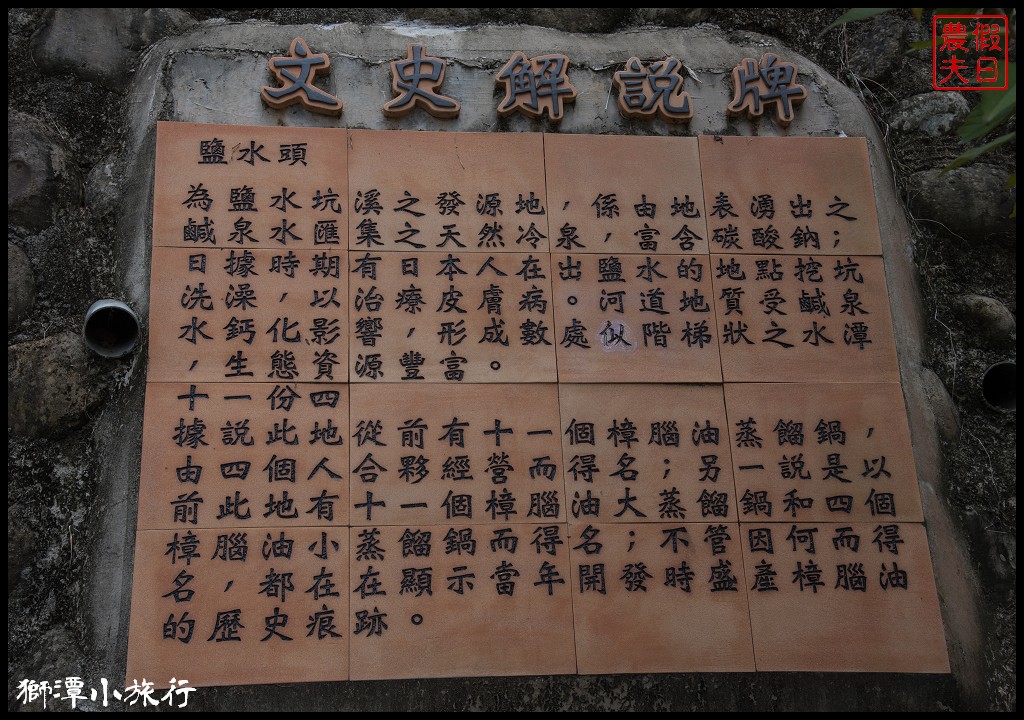 文史解說牌
鹽水頭
為鹽水坑溪之發源地，係由地表湧出之
鹹泉水匯集之天然冷泉，富含碳酸鈉；
日據時期有日本人在出鹽水的地點挖坑
洗澡，以治療皮膚病。河道地質受鹹泉
水鈣化影響，形成數處似階梯狀之水潭
，生態資源豐富。
十一份四
據說此地從前有十一個樟腦油蒸餾鍋，
由四個人合夥經營而得名；另一說是以
前此地有十一個樟腦油大蒸餾鍋和四個
樟腦油小蒸餾鍋而得名；不管因何而得
名，都在在顯示當年開發時盛產樟腦油
的歷史痕跡。
假日農夫
獅潭小旅行